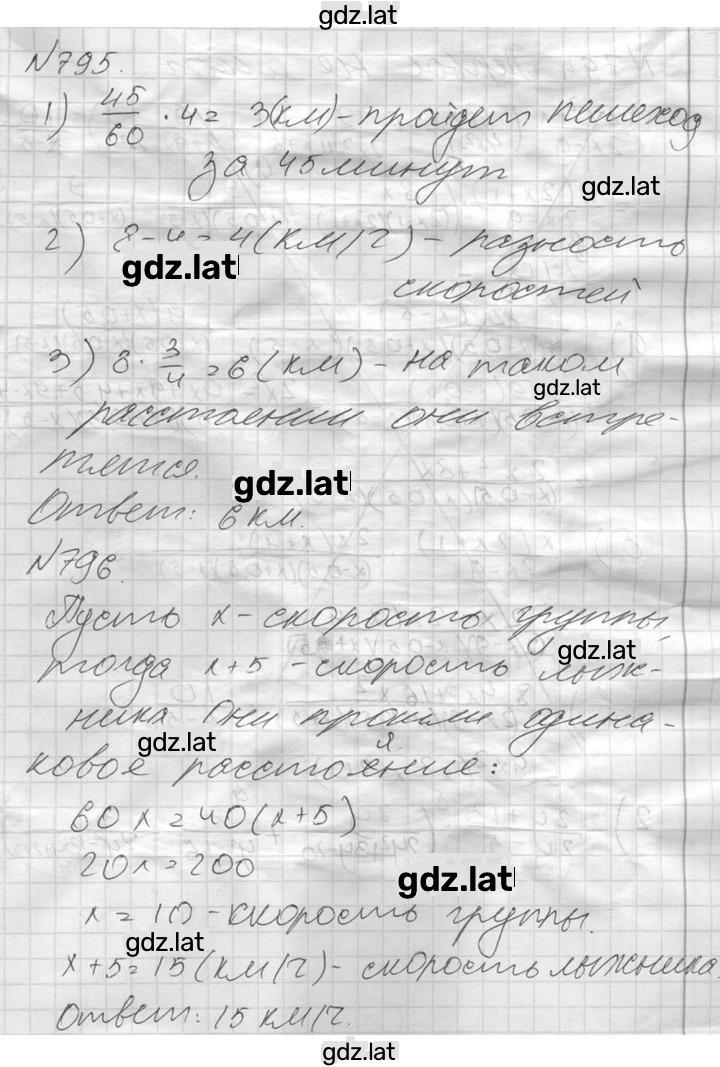 gdz.lat
N795.
1) 45/60 · 4 = 3(км) - пройдет пешеход
за 45 минут
gdz.lat
2) 8-4=4(км/ч) - разность
gdz.lat
скоростей
3) 8 · 3/4 = 6 (км) - на таком
gdz.lat
расстоянии они встре-
тятся.
gdz.lat
Ответ: 6 км.
N796.
Пусть x - скорость группы,
gdz.lat
тогда x+5 - скорость лыж-
ника Они прошли одина-
gdz.lat
ковое расстояние:
60x=40(x+5)
20x=200
gdz.lat
x=10 - скорость группы.
gdz.lat
x+5=15(км/ч) - скорость лыжника
Ответ: 15 км/ч.
gdz.lat